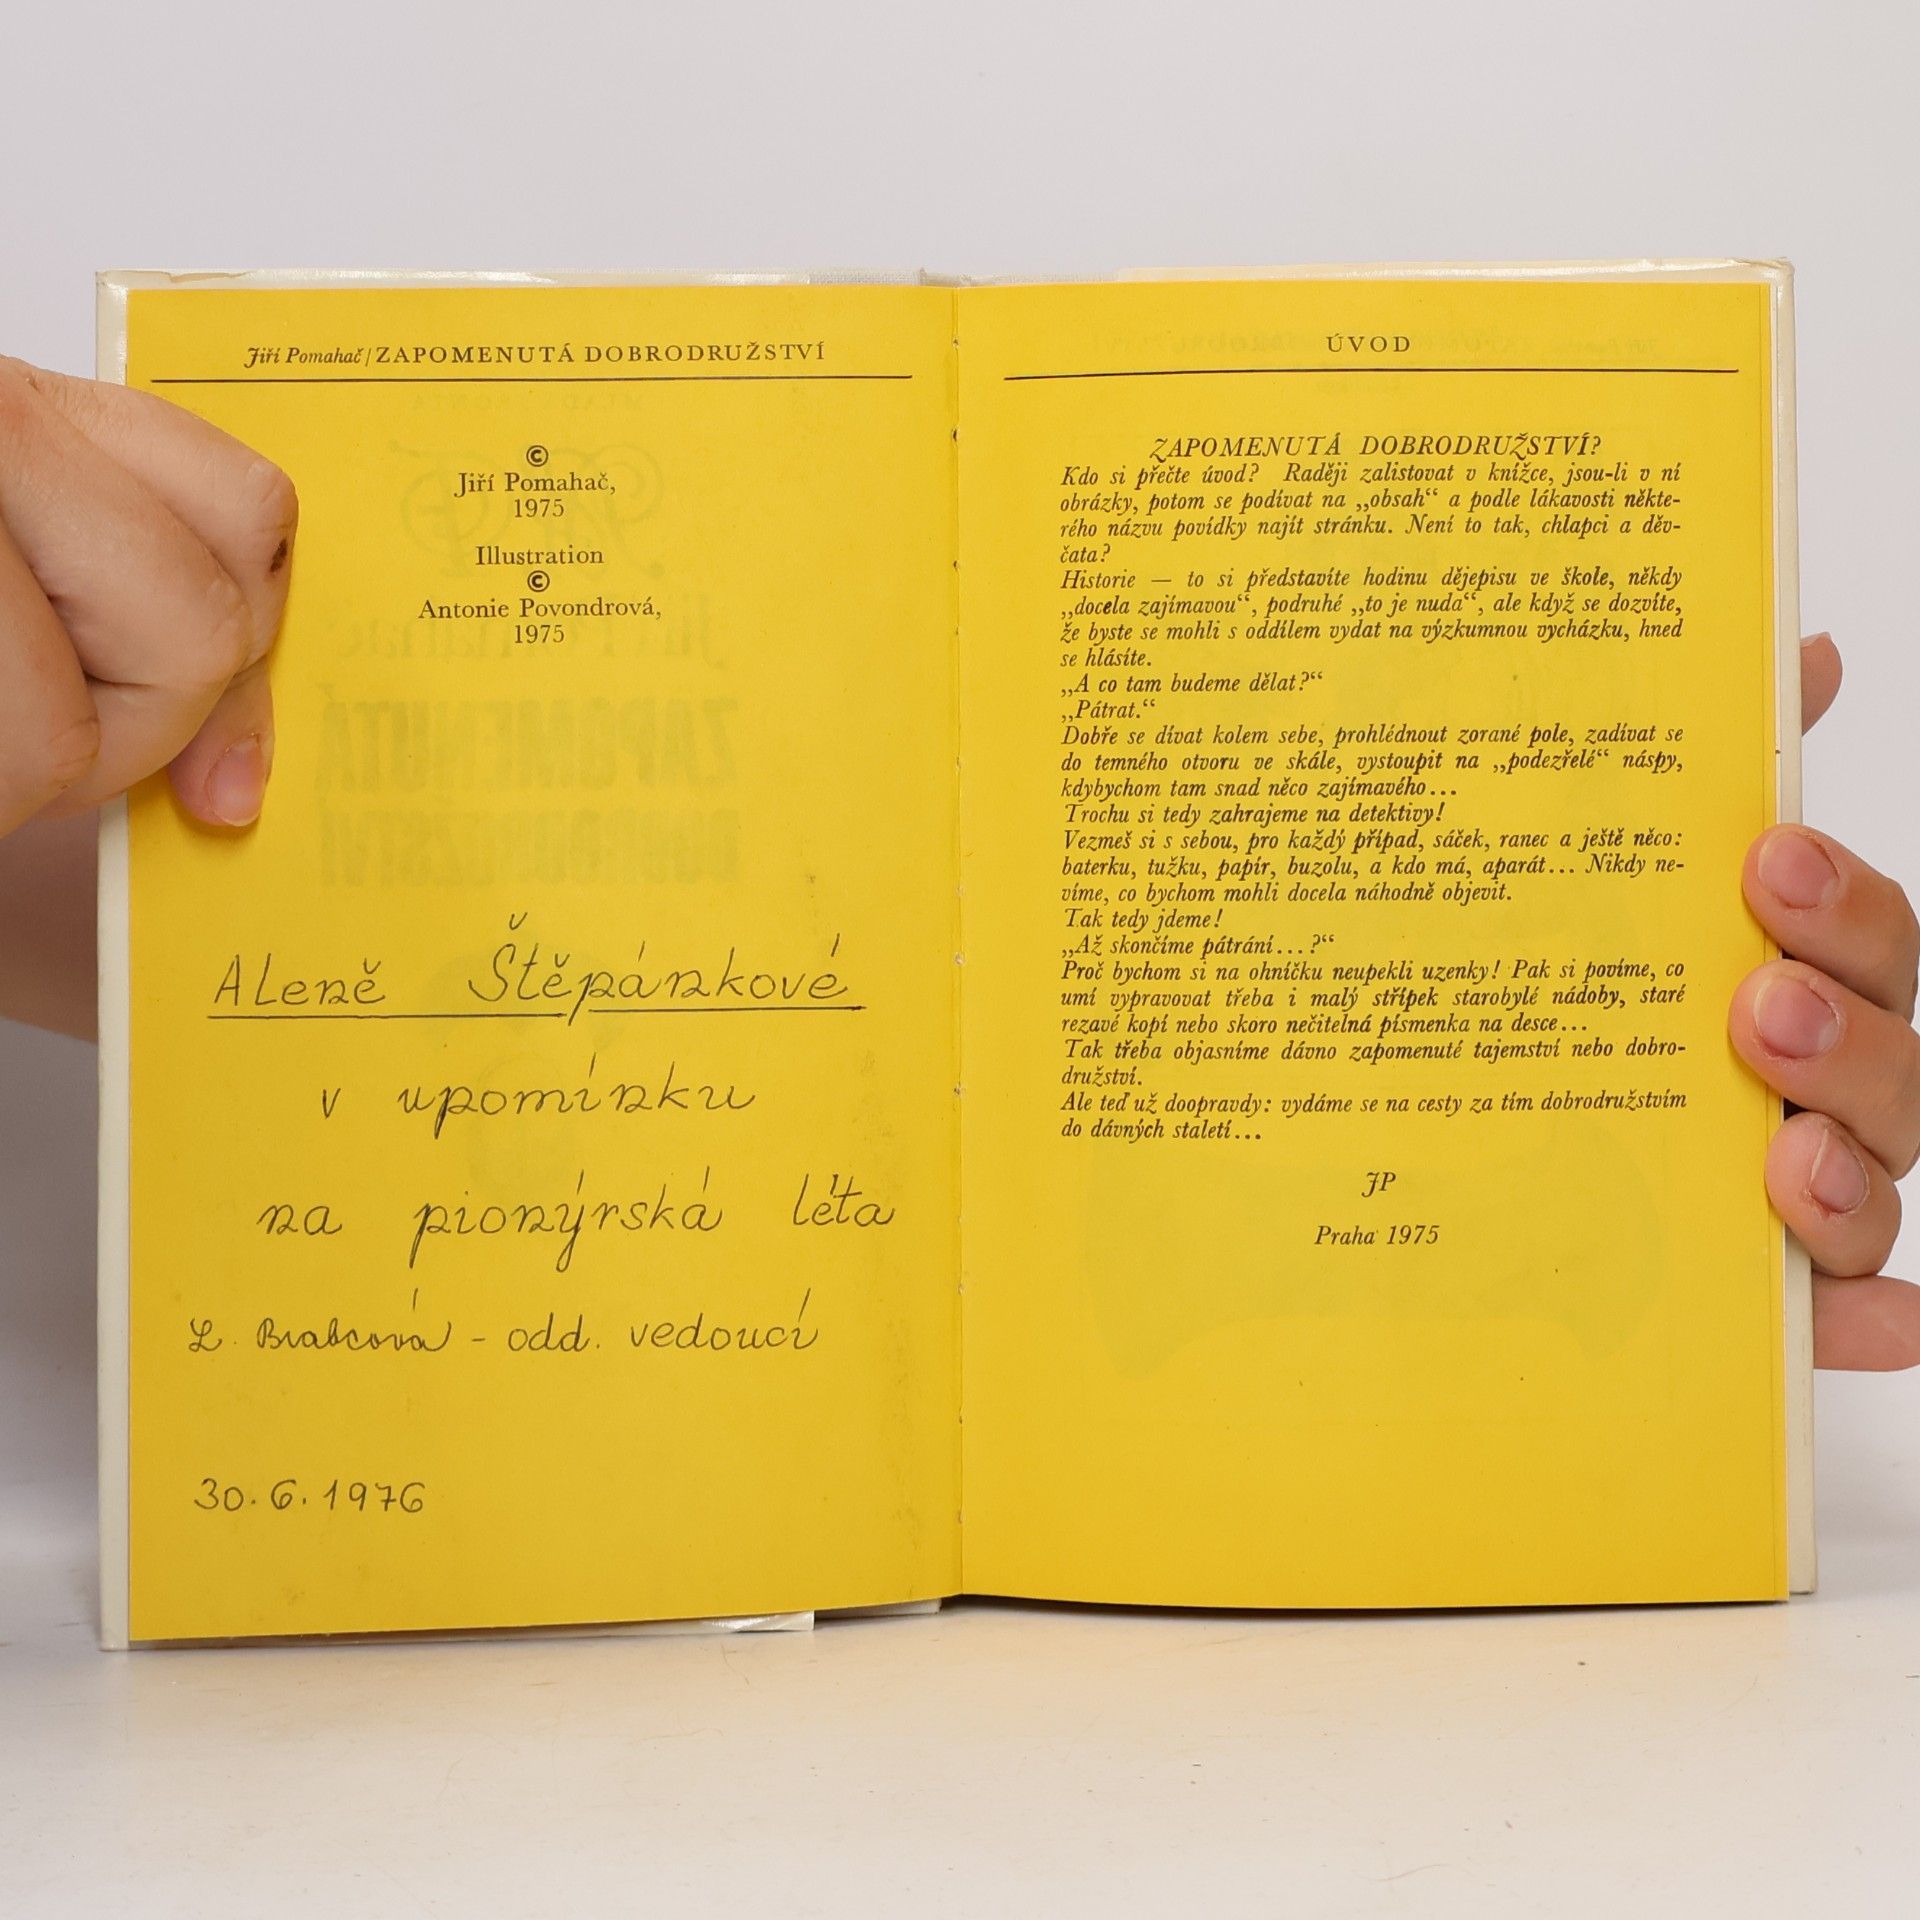 Jiří Pomahač / ZAPOMENUTÁ DOBRODRUŽSTVÍ
©
Jiří Pomahač,
1975
Illustration
©
Antonie Povondrová,
1975
Aleně Štěpánkové
v upomínku
na pionýrská léta
L. Brabcová - odd. vedoucí
30.6.1976
ÚVOD
ZAPOMENUTÁ DOBRODRUŽSTVÍ?
Kdo si přečte úvod? Raději zalistovat v knížce, jsou-li v ní
obrázky, potom se podívat na „obsah“ a podle lákavosti někte-
rého názvu povídky najít stránku. Není to tak, chlapci a děv-
čata?
Historie — to si představíte hodinu dějepisu ve škole, někdy
„docela zajímavou“, podruhé „to je nuda“, ale když se dozvíte,
že byste se mohli s oddílem vydat na výzkumnou vycházku, hned
se hlásíte.
„A co tam budeme dělat?“
„Pátrat.“
Dobře se dívat kolem sebe, prohlédnout zorané pole, zadívat se
do temného otvoru ve skále, vystoupit na „podezřelé“ náspy,
kdybychom tam snad něco zajímavého...
Trochu si tedy zahrajeme na detektivy!
Vezmeš si s sebou, pro každý případ, sáček, ranec a ještě něco:
baterku, tužku, papír, buzolu, a kdo má, aparát... Nikdy ne-
víme, co bychom mohli docela náhodně objevit.
Tak tedy jdeme!
„Až skončíme pátrání...?“
Proč bychom si na ohníčku neupekli uzenky! Pak si povíme, co
umí vypravovat třeba i malý střípek starobylé nádoby, staré
rezavé kopí nebo skoro nečitelná písmenka na desce...
Tak třeba objasníme dávno zapomenuté tajemství nebo dobro-
družství.
Ale teď už doopravdy: vydáme se na cesty za tím dobrodružstvím
do dávných staletí...
JP
Praha 1975